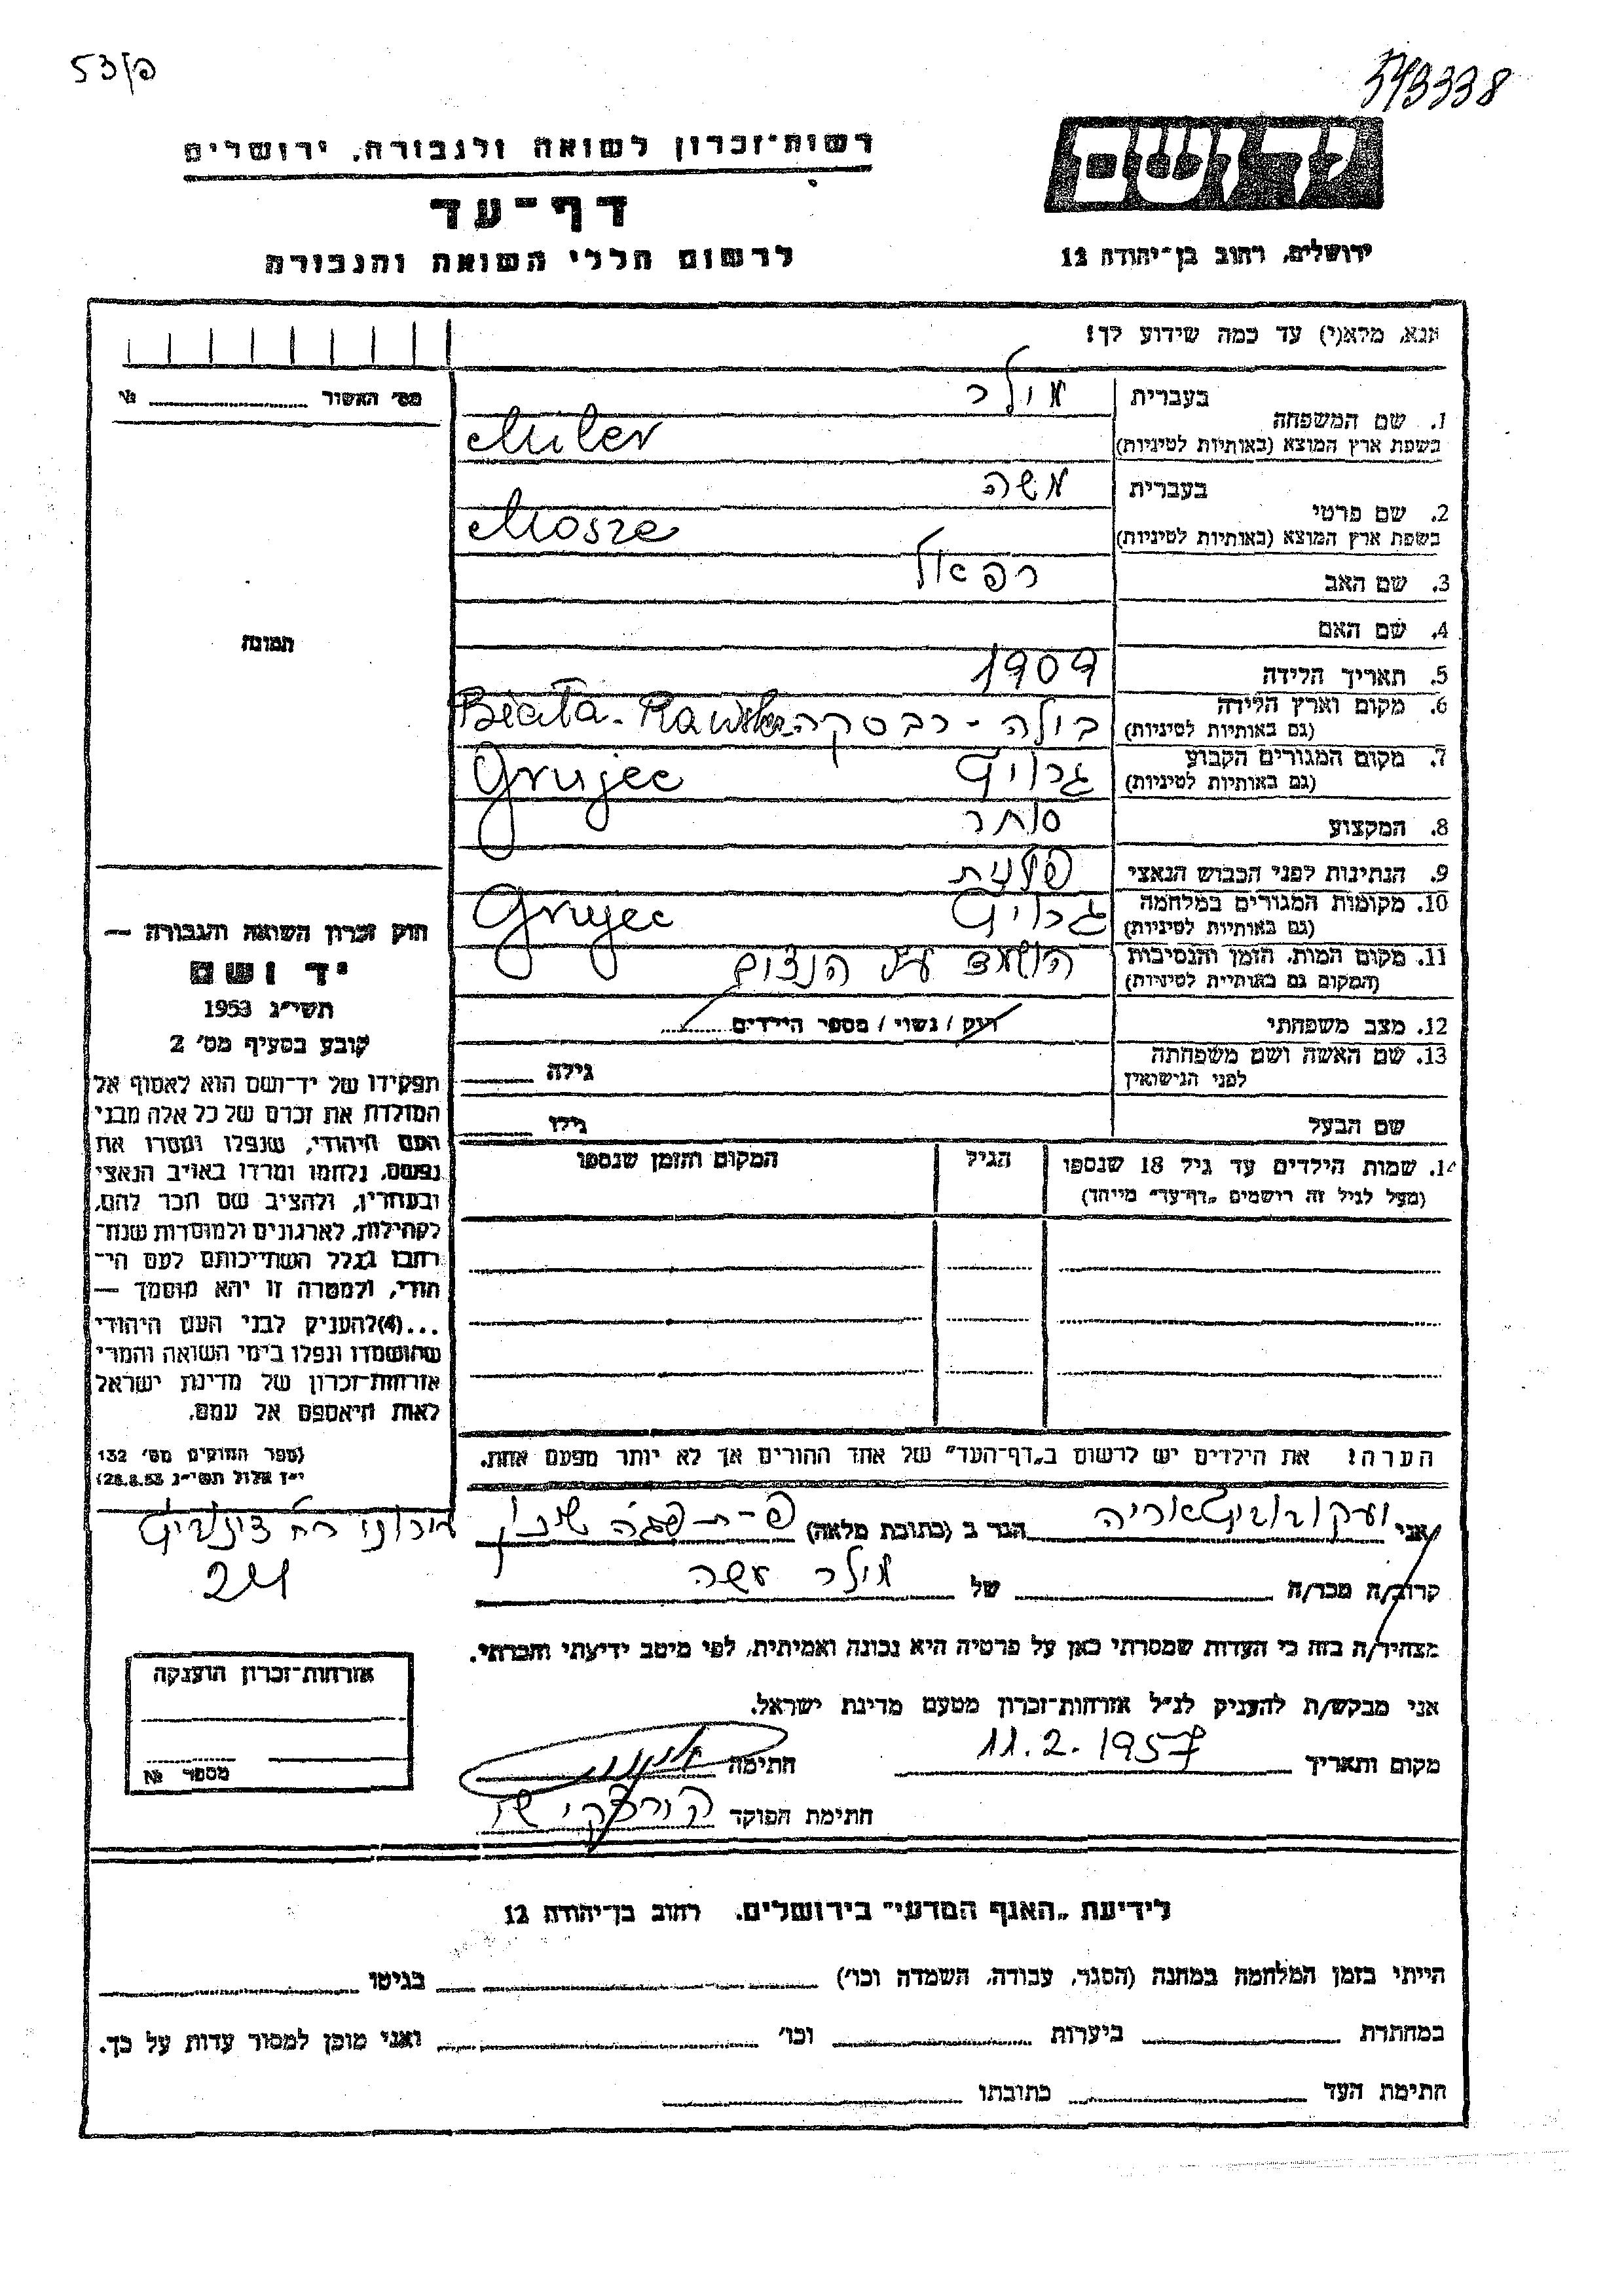 53/פ
543338
ידושם
ירושלים, רחוב בן־יהודה 12
רשות־זכרון לשואה ולגבורה, ירושלים
דף־עד
לרשום חללי השואה והגבורה
אנא, מלא(י) עד כמה שידוע לך!
מס' האשור №
1. שם המשפחה
בעברית מולר
בשפת ארץ המוצא (באותיות לטיניות) Miler
2. שם פרטי
בעברית משה
בשפת ארץ המוצא (באותיות לטיניות) Mosze
3. שם האב רפאל
4. שם האם
5. תאריך הלידה 1909
6. מקום וארץ הלידה בילה - רבסקה Biała - Rawska
(גם באותיות לטיניות)
7. מקום המגורים הקבוע גרויץ Grujec
(גם באותיות לטיניות)
8. המקצוע סוחר
9. הנתינות לפני הכבוש הנאצי פולנית
10. מקומות המגורים במלחמה גרויץ Grujec
(גם באותיות לטיניות)
11. מקום המות, הזמן והנסיבות הושמד על
(המקום גם באותיות לטיניות)
12. מצב משפחתי רווק / נשוי / מספר הילדים
13. שם האשה ושם משפחתה גילה
לפני הנישואין
שם הבעל גילו
14. שמות הילדים עד גיל 18 שנספו הגיל המקום והזמן שנספו
(מעל לגיל זה רישמים „דף־עד" מייחד)
הערה! את הילדים יש לרשום ב„דף־העד" של אחד ההורים אך לא יותר מפעם אחת.
תמונה
חוק זכרון השואה והגבורה —
יד ושם
תשי״ג 1953
קובע בסעיף מס' 2
תפקידו של יד־ושם הוא לאסוף אל
המולדת את זכרם של כל אלה מבני
העם היהודי, שנפלו ומסרו את
נפשם, נלחמו ומרדו באויב הנאצי
ובעוזריו, ולהציב שם וזכר להם,
לקהילות, לארגונים ולמוסדות שנח־
רבו בגלל השתייכותם לעם הי־
הודי, ולמטרה זו יהא מוסמך —
...(4)להעניק לבני העם היהודי
שהושמדו ונפלו בימי השואה והמרי
אזרחות־זכרון של מדינת ישראל
לאות היאספם אל עמם.
(ספר החוקים מס' 132
י״ז אלול תשי״ג 28.8.53)
אני אריה הגר ב (כתובת מלאה) פ-ת
24
קרוב/ה מכר/ה של מילר משה
מצהיר/ה בזה כי העדות שמסרתי כאן על פרטיה היא נכונה ואמיתית, לפי מיטב ידיעתי והכרתי.
אני מבקש/ת להעניק לנ״ל אזרחות־זכרון מטעם מדינת ישראל.
מקום ותאריך 11.2.1957 חתימה
חתימת הפוקד
אזרחות־זכרון הוענקה
מספר №
לידיעת „האגף המדעי" בירושלים, רחוב בן־יהודה 12
הייתי בזמן המלחמה במחנה (הסגר, עבודה, השמדה וכו') בגיטו
במחתרת ביערות וכו' ואני מוכן למסור עדות על כך.
חתימת העד כתובתו